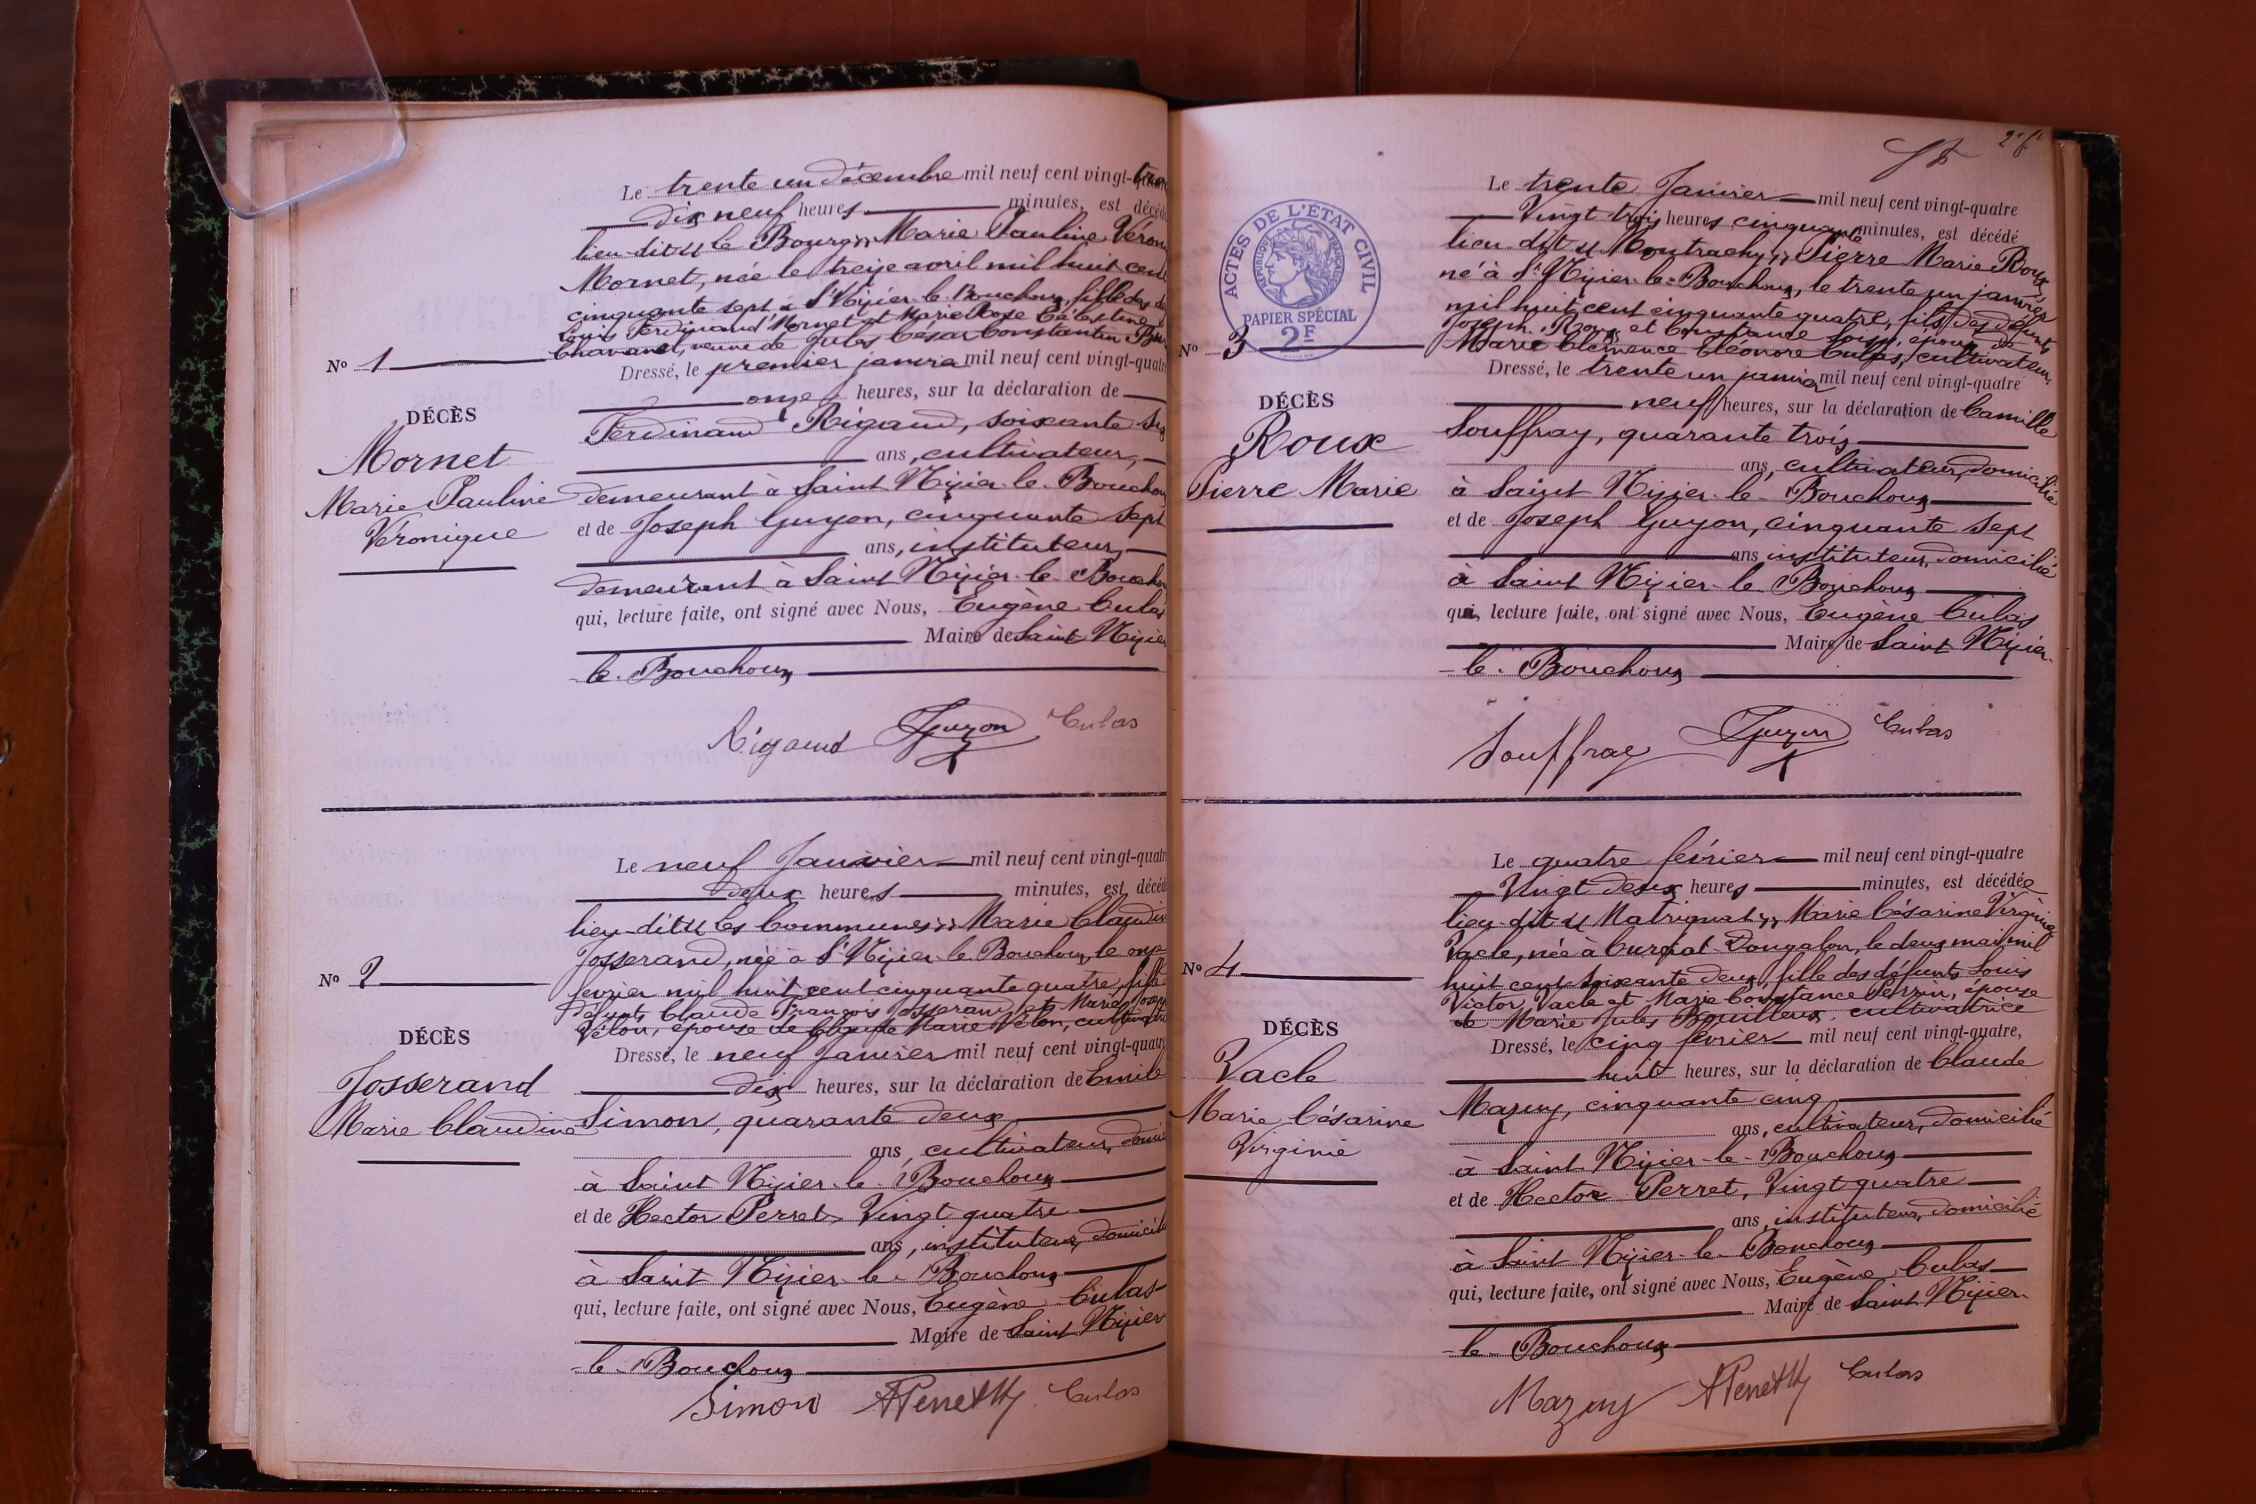 Le trente un décembre mil neuf cent vingt-trois
dix neuf heures minutes, est décédé
lieu-dit "le Bourg", Marie Pauline Véroni
Mornet, née le treize avril mil huit cent
cinquante sept à St Nizier-le-Bouchoux, fille des
Louis Ferdinand Mornet et Marie Rose Célestine
Chavanel, veuve de Jules César Constantin
No 1
Dressé, le premier janvier mil neuf cent vingt-quatre
onze heures, sur la déclaration de
DÉCÈS
Mornet
Marie Pauline
Véronique
Ferdinand Rigaud, soixante six
ans, cultivateur,
demeurant à Saint Nizier-le-Bouchoux
et de Joseph Guyon, cinquante sept
ans, instituteur,
demeurant à Saint Nizier-le-Bouchoux
qui, lecture faite, ont signé avec Nous, Eugène Culas
Maire de Saint Nizier
-le-Bouchoux
Rigaud Guyon Culas
Le neuf Janvier mil neuf cent vingt-quatre
deux heures minutes, est décédé
lieu-dit "les Communes", Marie Claudine
Josserand, née à St Nizier-le-Bouchoux, le onze
février mil huit cent cinquante quatre, fille
défunts Claude François Josserand et Marie Josep
Vélon, épouse de Claude Marie Vélon, cultivatrice
No 2
DÉCÈS
Josserand
Marie Claudine
Dressé, le neuf Janvier mil neuf cent vingt-quatre
dix heures, sur la déclaration de Emile
Simon, quarante deux
ans, cultivateur, domici
à Saint Nizier-le-Bouchoux
et de Hector Perret, Vingt quatre
ans, instituteur, domicilié
à Saint Nizier-le-Bouchoux
qui, lecture faite, ont signé avec Nous, Eugène Culas
Maire de Saint Nizier
-le-Bouchoux
Simon HPerret Culas
26
ACTES DE L'ÉTAT CIVIL
RÉPUBLIQUE FRANÇAISE
PAPIER SPÉCIAL
2F
Le trente Janvier mil neuf cent vingt-quatre
Vingt trois heures cinquante minutes, est décédé
lieu-dit "Montrachy", Pierre Marie Roux,
né à St Nizier-le-Bouchoux, le trente un janvier
mil huit cent cinquante quatre, fils des défunts
Joseph Roux et Constance, époux de
Marie Clémence Eléonore Culas, cultivateur
No 3
DÉCÈS
Roux
Pierre Marie
Dressé, le trente un janvier mil neuf cent vingt-quatre
neuf heures, sur la déclaration de Camille
Souffray, quarante trois
ans, cultivateur, domicilié
à Saint Nizier-le-Bouchoux
et de Joseph Guyon, cinquante sept
ans, instituteur, domicilié
à Saint Nizier-le-Bouchoux
qui, lecture faite, ont signé avec Nous, Eugène Culas
Maire de Saint Nizier-
-le-Bouchoux
Souffray Guyon Culas
Le quatre février mil neuf cent vingt-quatre
Vingt deux heures minutes, est décédée
lieu-dit "Matrignat", Marie Césarine Virginie
Vacle, née à Curciat-Dongalon, le deux mai mil
huit cent soixante deux, fille des défunts Louis
Victor Vacle et Marie Constance Perrin, épouse
de Marie Jules Bouilloux, cultivatrice
No 4
DÉCÈS
Vacle
Marie Césarine
Virginie
Dressé, le cinq février mil neuf cent vingt-quatre,
huit heures, sur la déclaration de Claude
Mazuy, cinquante cinq
ans, cultivateur, domicilié
à Saint Nizier-le-Bouchoux
et de Hector Perret, Vingt quatre
ans, instituteur, domicilié
à Saint Nizier-le-Bouchoux
qui, lecture faite, ont signé avec Nous, Eugène Culas
Maire de Saint Nizier-
-le-Bouchoux
Mazuy HPerret Culas